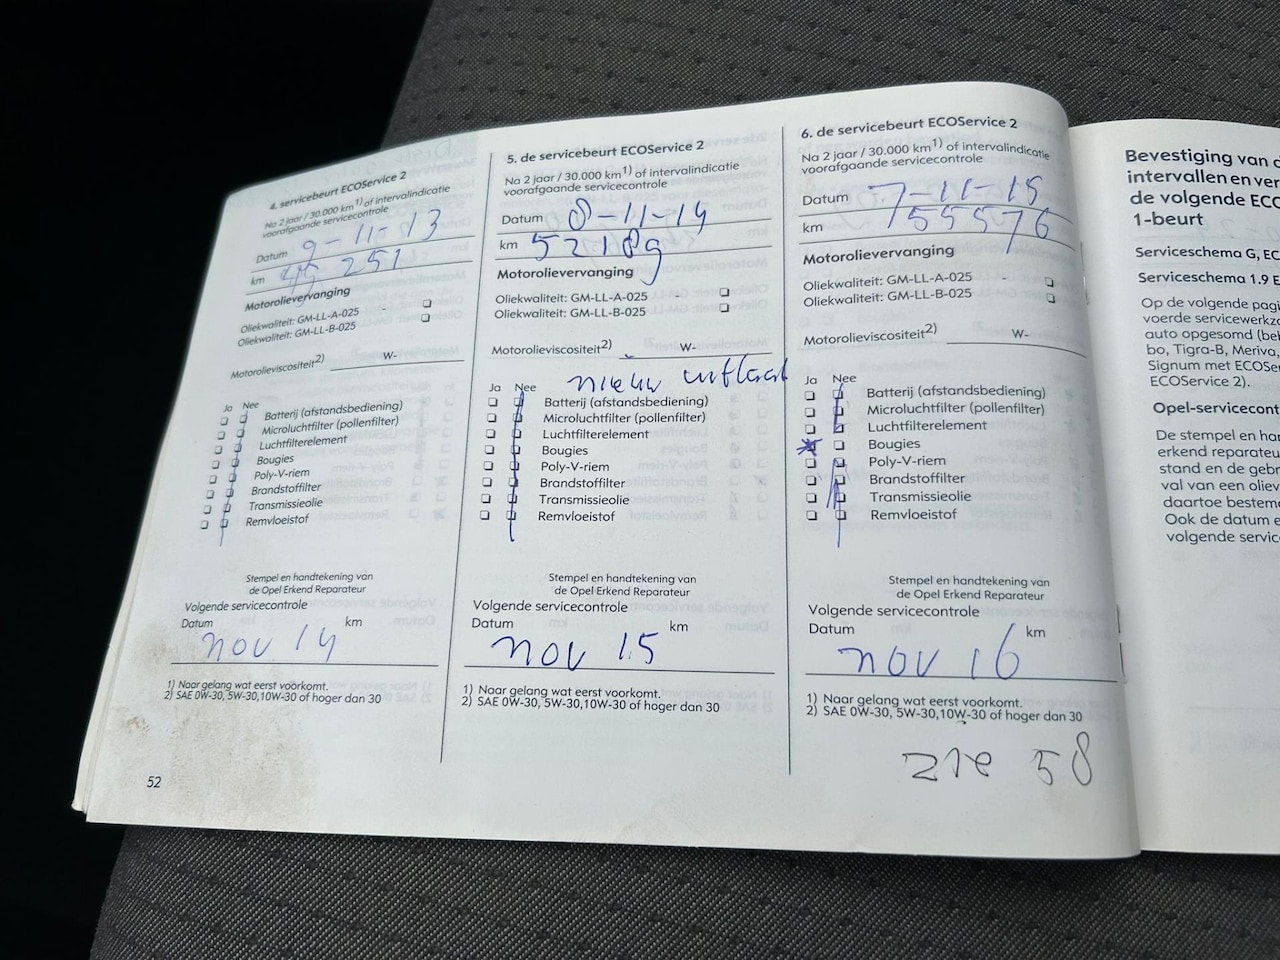 4. servicebeurt ECOService 2
Na 2 jaar / 30.000 km1) of intervalindicatie
voorafgaande servicecontrole
Datum 9-11-13
km 251
Motorolievervanging
Oliekwaliteit: GM-LL-A-025 -
Oliekwaliteit: GM-LL-B-025
Motorolieviscositeit2) W-
Ja Nee
Batterij (afstandsbediening)
Microluchtfilter (pollenfilter)
Luchtfilterelement
Bougies
Poly-V-riem
Brandstoffilter
Transmissieolie
Remvloeistof
Stempel en handtekening van
de Opel Erkend Reparateur
Volgende servicecontrole
Datum km
nov 14
1) Naar gelang wat eerst voorkomt.
2) SAE 0W-30, 5W-30,10W-30 of hoger dan 30
52
5. de servicebeurt ECOService 2
Na 2 jaar / 30.000 km1) of intervalindicatie
voorafgaande servicecontrole
Datum 8-11-14
km 52189
Motorolievervanging
Oliekwaliteit: GM-LL-A-025 -
Oliekwaliteit: GM-LL-B-025
Motorolieviscositeit2) W-
nieuw uitlaat
Ja Nee
Batterij (afstandsbediening)
Microluchtfilter (pollenfilter)
Luchtfilterelement
Bougies
Poly-V-riem
Brandstoffilter
Transmissieolie
Remvloeistof
Stempel en handtekening van
de Opel Erkend Reparateur
Volgende servicecontrole
Datum km
nov 15
1) Naar gelang wat eerst voorkomt.
2) SAE 0W-30, 5W-30,10W-30 of hoger dan 30
6. de servicebeurt ECOService 2
Na 2 jaar / 30.000 km1) of intervalindicatie
voorafgaande servicecontrole
Datum 7-11-15
km 55576
Motorolievervanging
Oliekwaliteit: GM-LL-A-025 -
Oliekwaliteit: GM-LL-B-025
Motorolieviscositeit2) W-
Ja Nee
Batterij (afstandsbediening)
Microluchtfilter (pollenfilter)
Luchtfilterelement
Bougies
Poly-V-riem
Brandstoffilter
Transmissieolie
Remvloeistof
Stempel en handtekening van
de Opel Erkend Reparateur
Volgende servicecontrole
Datum km
nov 16
1) Naar gelang wat eerst voorkomt.
2) SAE 0W-30, 5W-30,10W-30 of hoger dan 30
zie 58
Bevestiging van
intervallen en ver
de volgende ECO
1-beurt
Serviceschema G, EC
Serviceschema 1.9 E
Op de volgende pagi
voerde servicewerkza
auto opgesomd (bel
bo, Tigra-B, Meriva,
Signum met ECOSe
ECOService 2).
Opel-servicecont
De stempel en han
erkend reparateu
stand en de gebr
val van een oliev
daartoe bestem
Ook de datum e
volgende servic